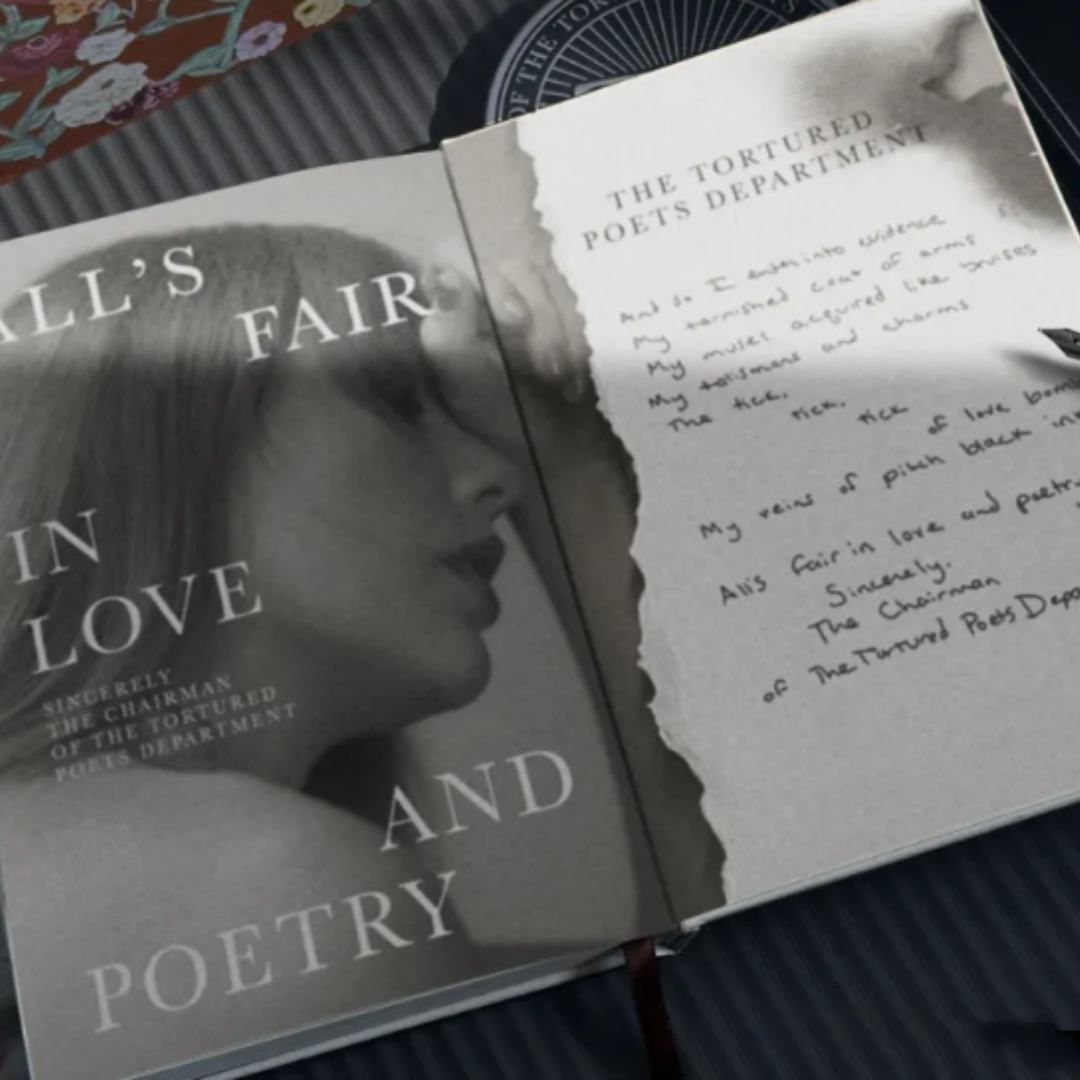 OF THE TOR
ALL'S
FAIR
IN
LOVE
SINCERELY
THE CHAIRMAN
OF THE TORTURED
POETS DEPARTMENT
AND
POETRY
THE TORTURED
POETS DEPARTMENT
And so I enter into evidence
My tarnished coat of arms
My muses acquired like bruises
My talismans and charms
The tick, tick, tick of love bom
My veins of pitch black in
All's fair in love and poetr
Sincerely,
The Chairman
of The Tortured Poets Depa